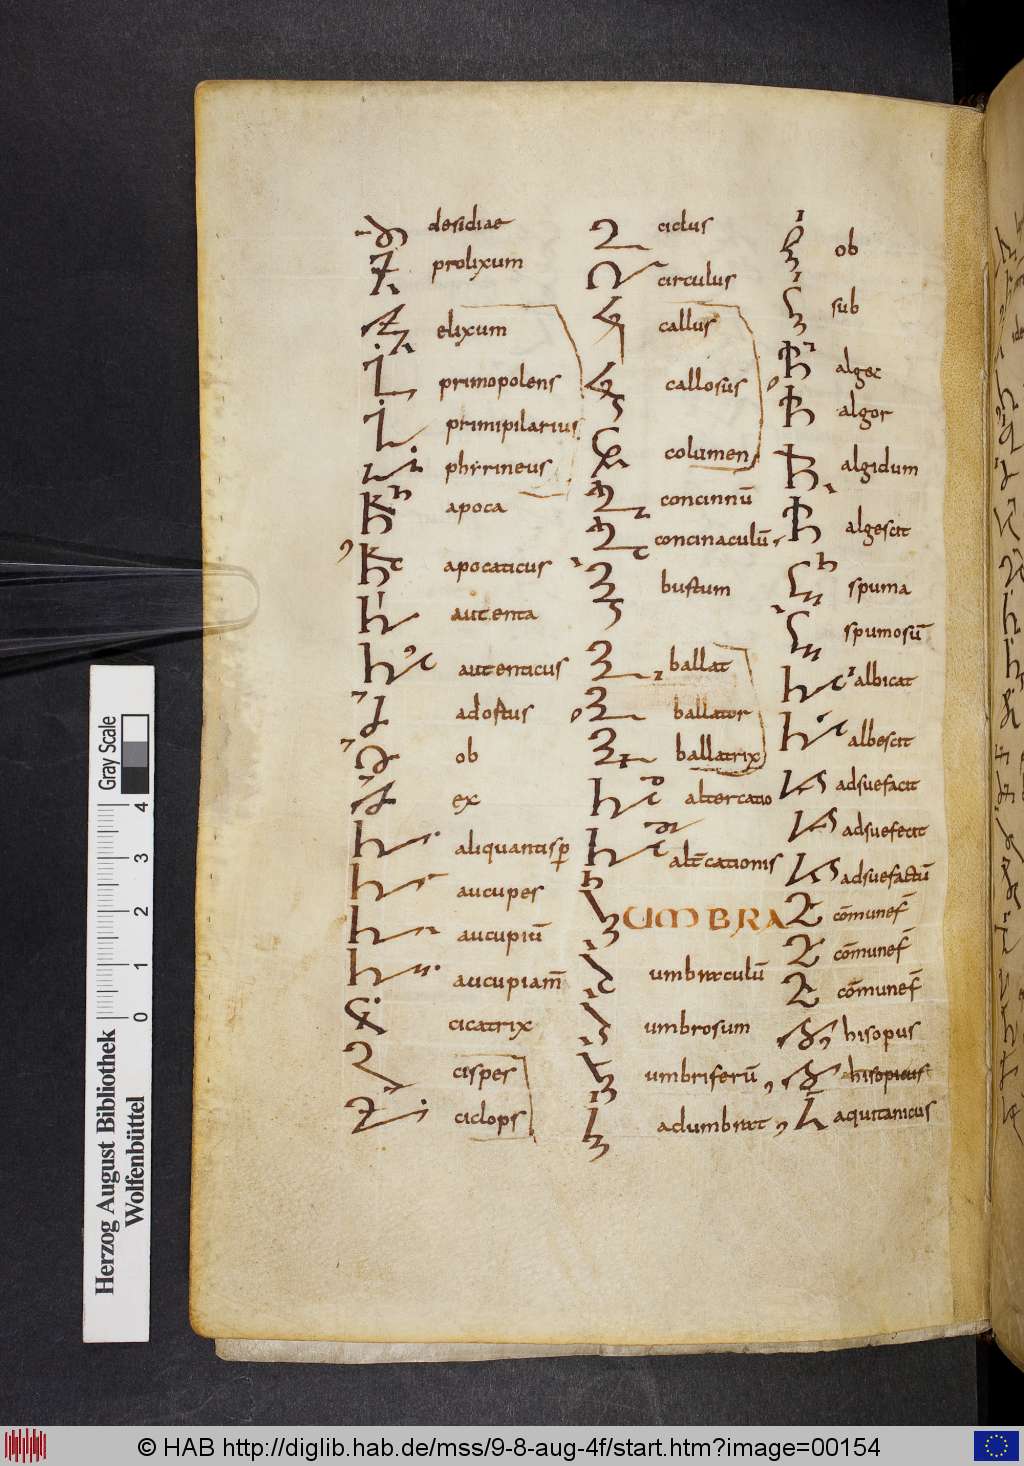 desidiae
prolixum
elixum
primopolens
primipilarius
phyrineus
apoca
apocaticus
autenta
autenticus
adostus
ob
ex
aliquantisp
aucupes
aucupiū
aucupiam̄
cicatrix
cispes
ciclops
ciclus
circulus
callus
callosus
columen
concinnū
concinaculū
bustum
ballat
ballator
ballatrix
altercatio
altēcationis
UMBRA
umbraculū
umbrosum
umbriferū
adumbrat
ob
sub
alget
algor
algidum
algescit
spuma
spumosū
albicat
albescit
adsuefacit
adsuefecit
adsuefactū
cōmunef̄
cōmunef̄
cōmunef̄
hisopus
hisopicus
aquitanicus
Gray Scale
4
3
2
1
0
Herzog August Bibliothek
Wolfenbüttel
© HAB http://diglib.hab.de/mss/9-8-aug-4f/start.htm?image=00154